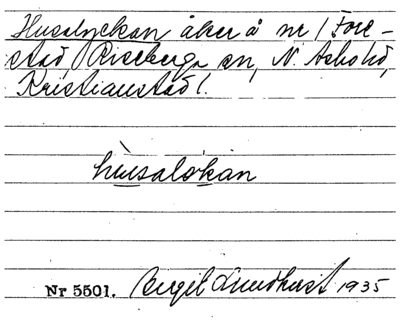 Husalyckan åker å nr 1 Fore-
stad, Riseberga sn, N. Åsbo hd,
Kristianstad l.
husalokan
Nr 5501. Birgit Lundkvist 1935